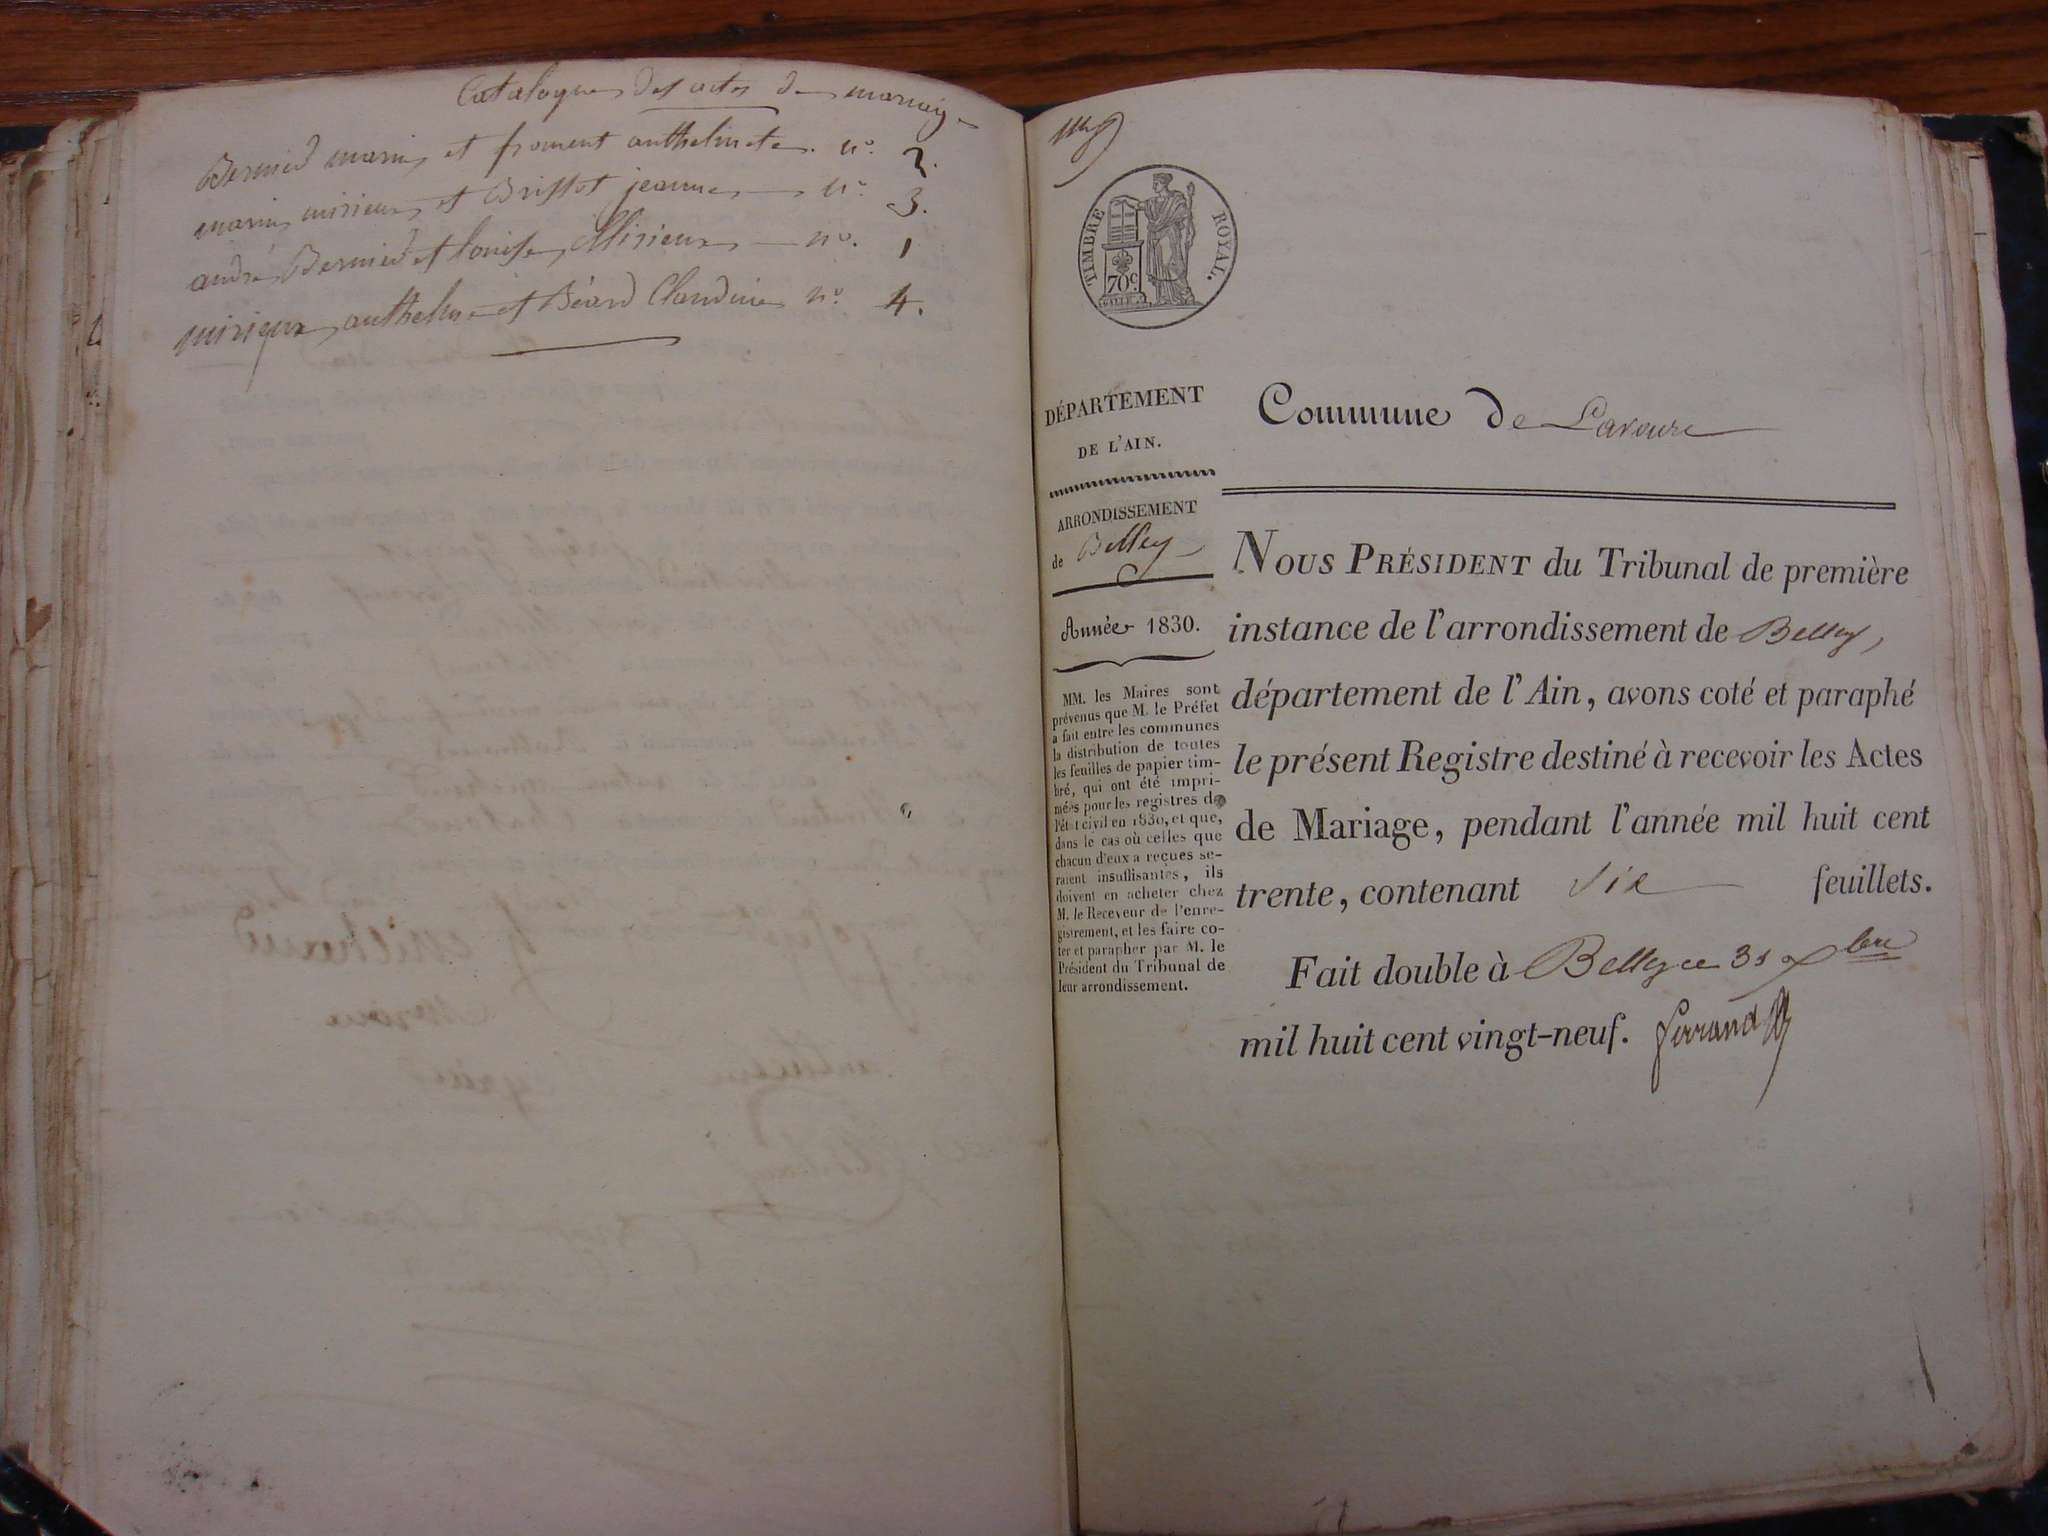 Catalogue des actes de mariage
Bernied marin et froment anthelmete n°. 2.
marin mirieux et Brissot jeanne n° 3.
andré Bernied et louise Mirieux n°. 1
mirieux anthelme et Béard Claudine n° 4.
TIMBRE ROYAL.
70 c.
DÉPARTEMENT
DE L'AIN.
Commune de Lavoure
ARRONDISSEMENT
de Belley
Année 1830.
MM. les Maires sont
prévenus que M. le Préfet
a fait entre les communes
la distribution de toutes
les feuilles de papier tim-
bré, qui ont été impri-
mées pour les registres de
l'état civil en 1830, et que,
dans le cas où celles que
chacun d'eux a reçues se-
raient insuffisantes, ils
doivent en acheter chez
M. le Receveur de l'enre-
gistrement, et les faire co-
ter et parapher par M. le
Président du Tribunal de
leur arrondissement.
NOUS PRÉSIDENT du Tribunal de première
instance de l'arrondissement de Belley,
département de l'Ain, avons coté et paraphé
le présent Registre destiné à recevoir les Actes
de Mariage, pendant l'année mil huit cent
trente, contenant six feuillets.
Fait double à Belley ce 31 xbre
mil huit cent vingt-neuf. Ferrand